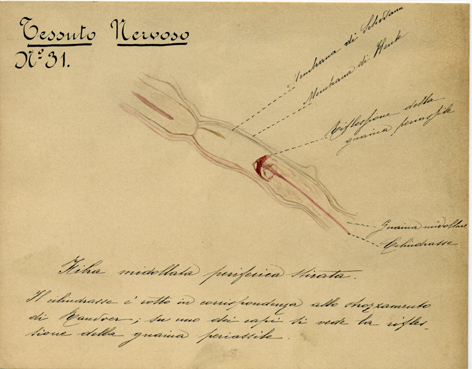 Tessuto Nervoso
Nº 31.
Membrana di
Membrana di
Riflessione della
guaina periassile
Guaina midollare
Cilindrasse
Fibra midollata periferica stirata.
Il cilindrasse è rotto in corrispondenza allo strozzamento
di Ranvier; su uno dei capi si vede la rifles-
sione della guaina periassile.